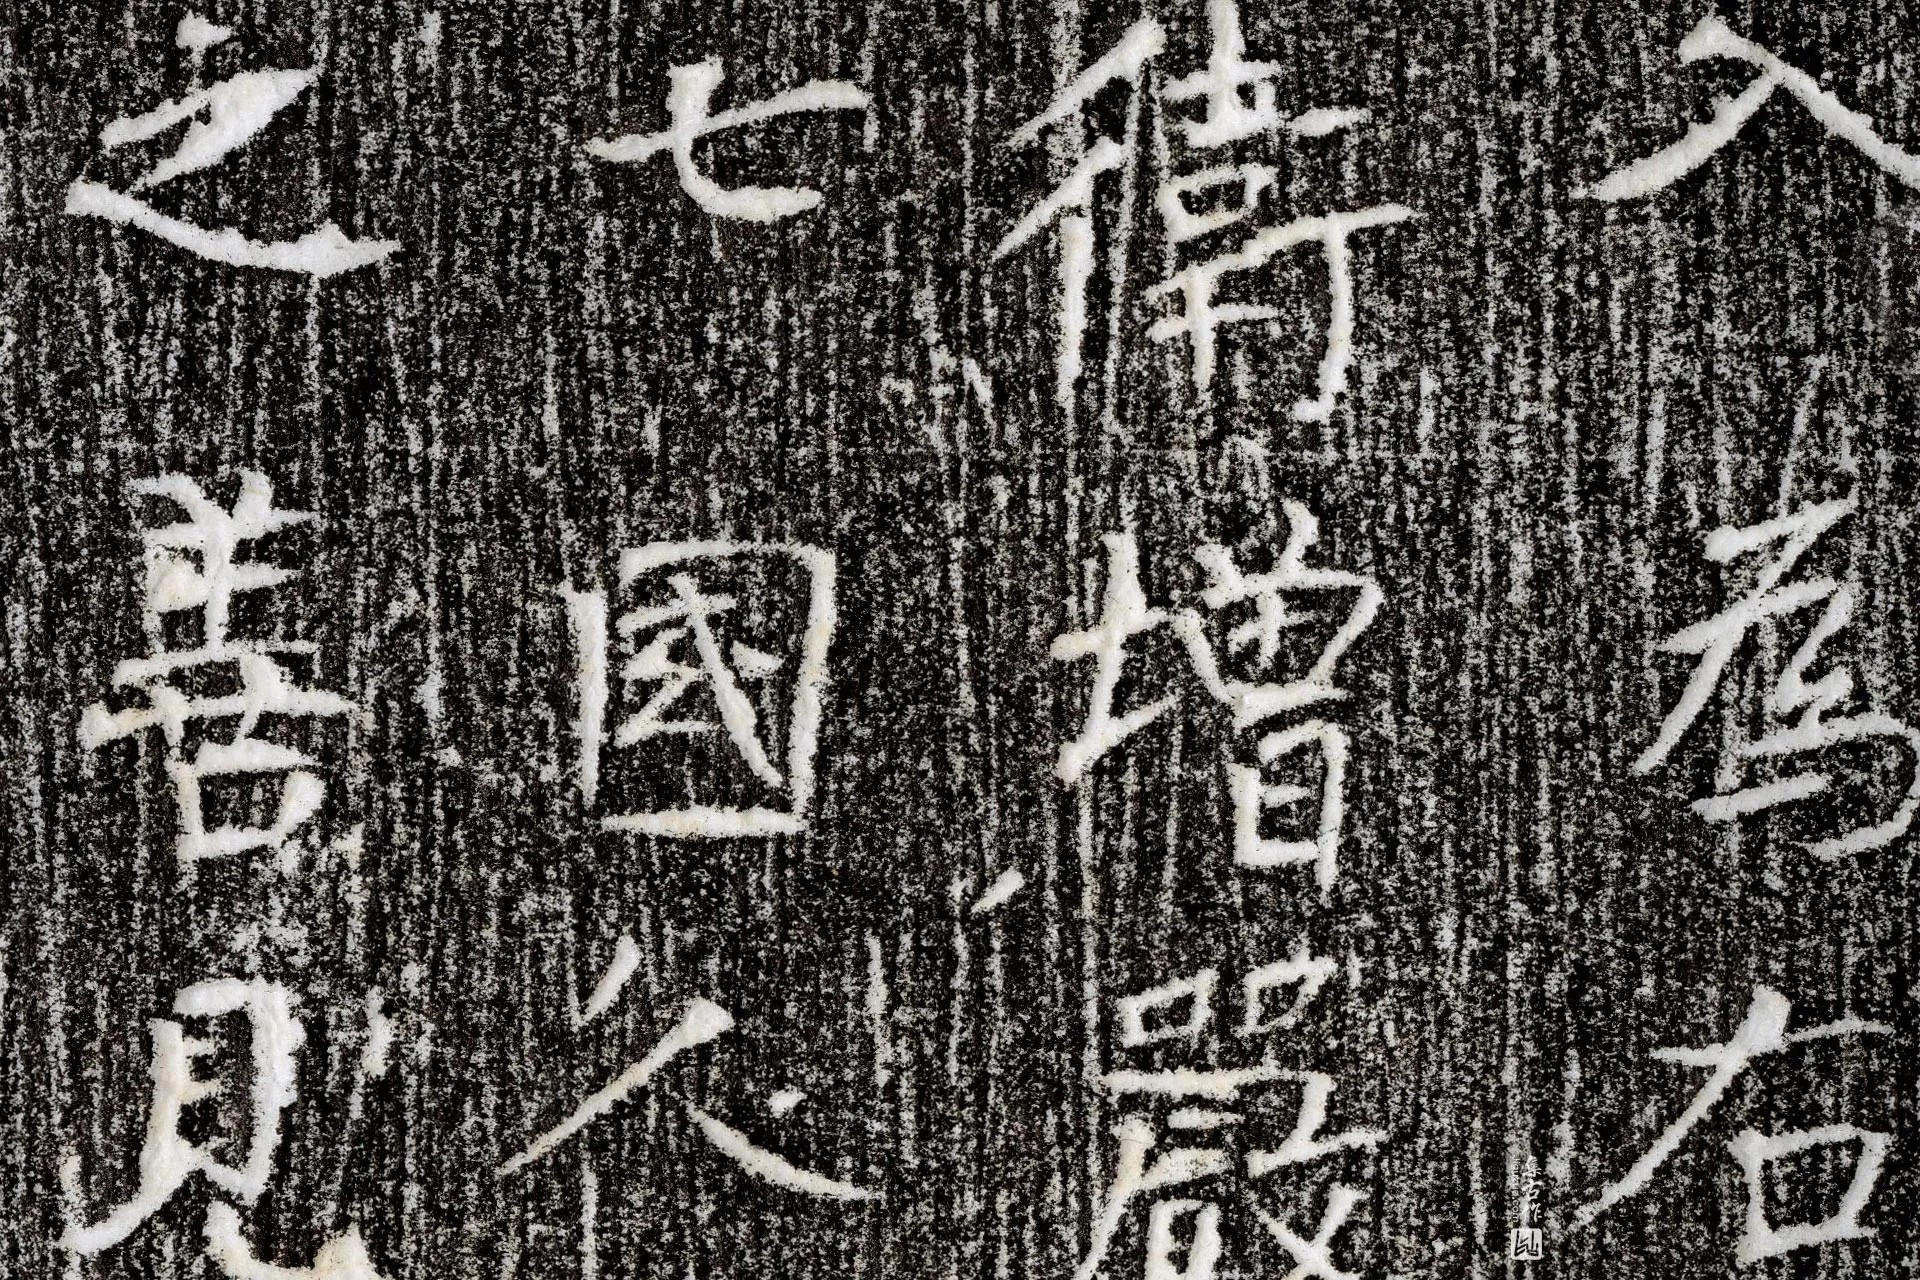 入為右
衛增嚴
七國人
之善